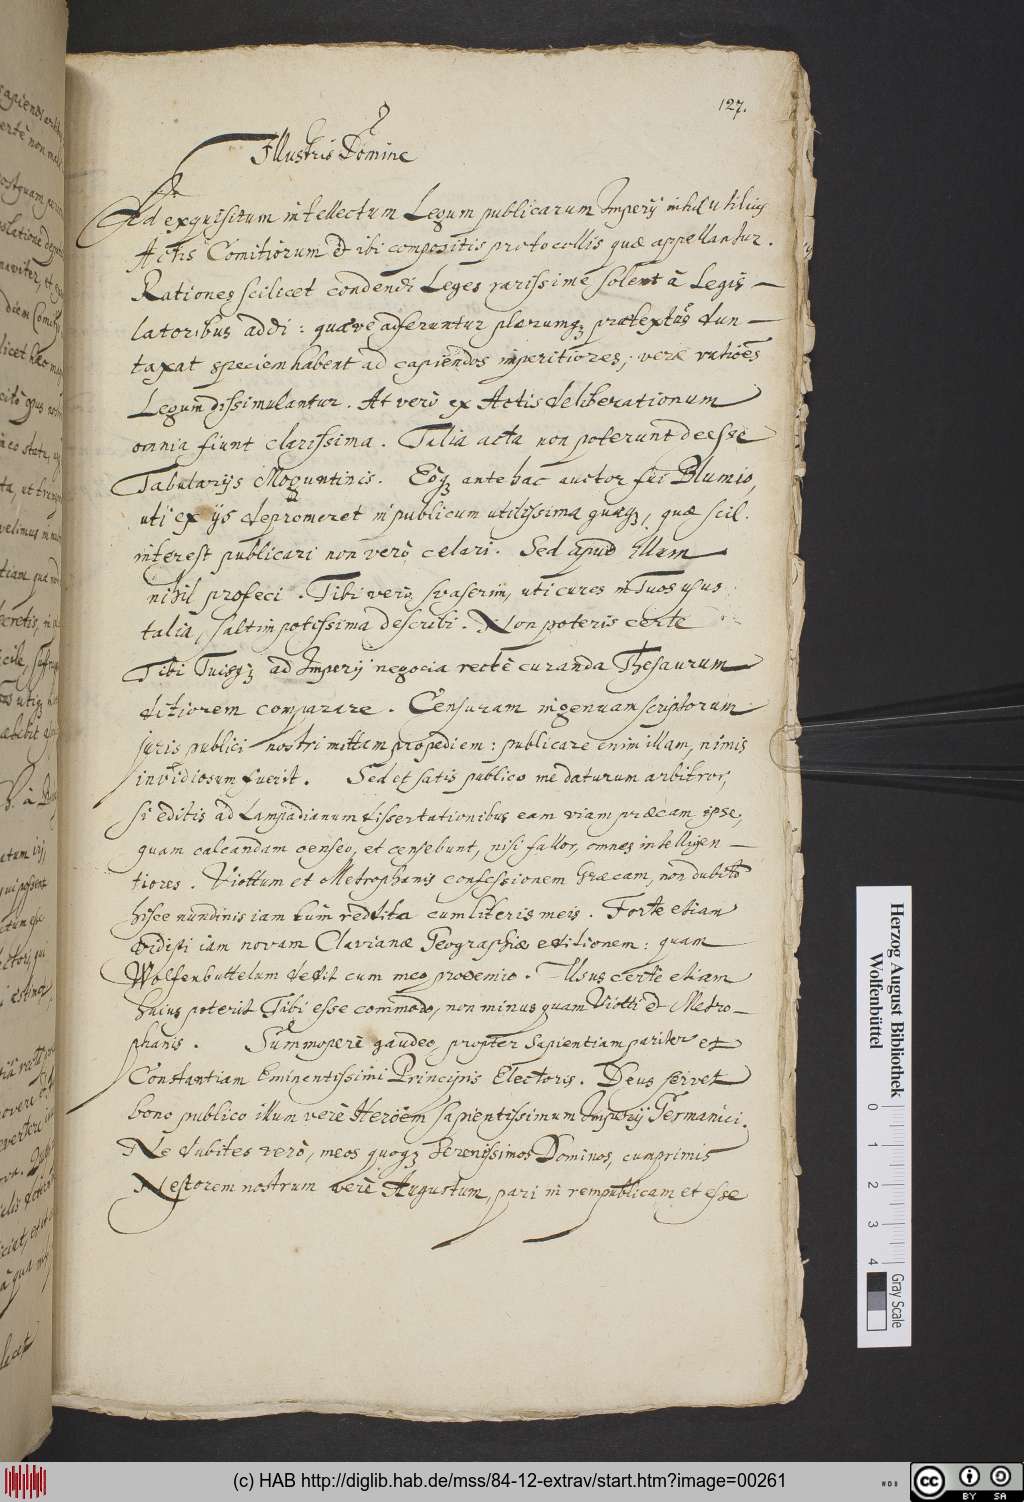 127.
Illustris Domine
Ad exquisitum intellectum Legum publicarum Imperij nihil utilius
Actis Comitiorum & ibi compositis protocollis quæ appellantur.
Rationes scilicet condendi Leges rarissime solent à Legis-
latoribus addi: quæve adferuntur plærumq; prætextûs dun-
taxat speciem habent ad capiendos imperitiores; veræ rationes
Legum dissimulantur. At verò ex Actis deliberationum
omnia fiunt clarissima. Talia acta non poterunt deesse
Tabularijs Moguntinis. Eóq; ante hac auctor fui Blumio,
uti ex ijs depromeret in publicum utilissima quæq;, quæ scil.
interest publicari non verò celari. Sed apud illum
nihil profeci. Tibi verò svaserim, uti cures in Tuos usus
talia, saltim potissima describi. Non poteris certe
Tibi Tuisq; ad Imperij negocia rectè curanda Thesaurum
ditiorem comparare. Censuram ingenuam scriptorum
juris publici nostri mittam propediem: publicare enim illam, nimis
invidiosum fuerit. Sed et satis publico me daturum arbitror,
si editis ad Lampadianum dissertationibus eam viam præeam ipse,
quam calcandam censeo, et censebunt, nisi fallor, omnes intelligen-
tiores. Viottum et Metrophanis confessionem Græcam, non dubito
hisce nundinis iam tum reddita cum literis meis. Forte etiam
vidisti iam novam Clavianæ Geographiæ editionem: quam
Wolfenbuttelum dedit cum meo proœmio. Usus certè etiam
huius poterit Tibi esse commodo, non minus quam Viotti & Metro-
phanis. Summoperè gaudeo, propter sapientiam pariter et
Constantiam Eminentissimi Principis Electoris. Deus servet
bono publico illum verè Heröem sapientissimum Imperij Germanici.
Ne dubites verò, meos quoq; Serenissimos Dominos, cumprimis
Nestorem nostrum verè Augustum, pari in rempublicam et esse
Herzog August Bibliothek
Wolfenbüttel
0 1 2 3 4
Gray Scale
(c) HAB http://diglib.hab.de/mss/84-12-extrav/start.htm?image=00261
cc BY SA